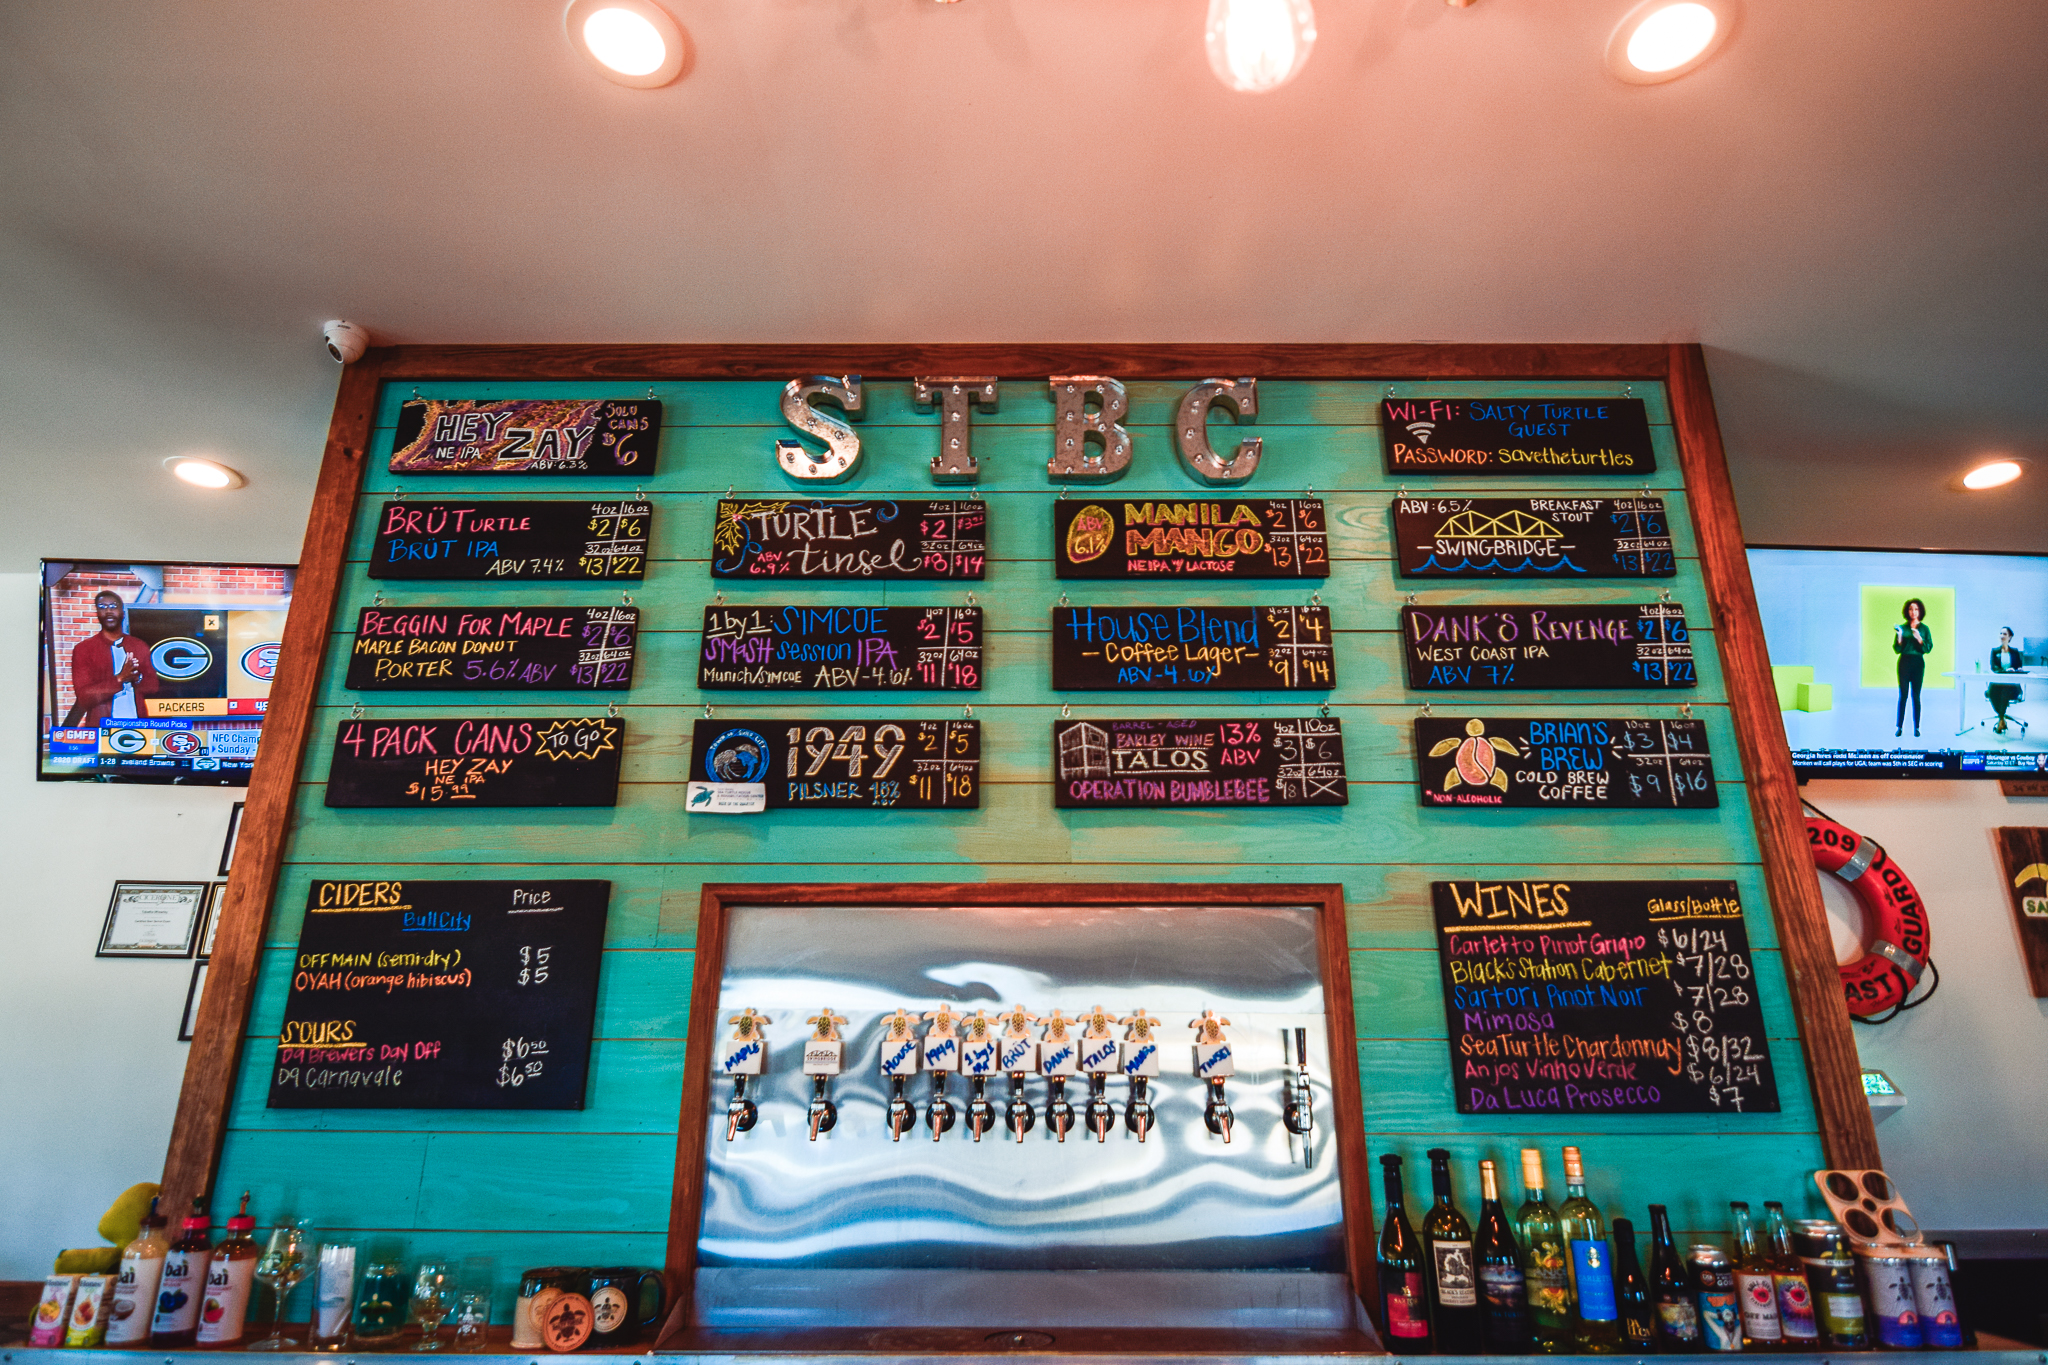 STBC
HEY ZAY
NE IPA
ABV: 6.3%
SOLO CANS
$6
WI-FI: SALTY TURTLE
GUEST
PASSWORD: savetheturtles
BRÜTURTLE
BRÜT IPA
ABV 7.4%
4oz 16oz
$2 $6
32oz 64oz
$13 $22
TURTLE
tinsel
ABV
6.9%
4oz 16oz
$2
32oz 64oz
$8 $14
ABV
6.1%
MANILA
MANGO
NEIPA w/ LACTOSE
4oz 16oz
$2 $6
32oz 64oz
$13 $22
ABV: 6.5%
BREAKFAST
STOUT
-SWINGBRIDGE-
4oz 16oz
$2 $6
32oz 64oz
$13 $22
BEGGIN FOR MAPLE
MAPLE BACON DONUT
PORTER 5.6% ABV
4oz 16oz
$2 $6
32oz 64oz
$13 $22
1 by 1: SIMCOE
SMASH session IPA
Munich/SIMCOE ABV-4.6%
4oz 16oz
$2 $5
32oz 64oz
$11 $18
House Blend
-Coffee Lager-
ABV-4.6%
4oz 16oz
$2 $4
32oz 64oz
$9 $14
DANK'S REVENGE
WEST COAST IPA
ABV 7%
4oz 16oz
$2 $6
32oz 64oz
$13 $22
4 PACK CANS
TO GO
HEY ZAY
NE IPA
$15.99
1949
PILSNER 4.8%
ABV
4oz 16oz
$2 $5
32oz 64oz
$11 $18
BARREL-AGED
BARLEY WINE 13%
TALOS ABV
OPERATION BUMBLEBEE
4oz 10oz
$3 $6
32oz 64oz
$18 X
BRIAN'S
BREW
COLD BREW
COFFEE
*NON-ALCOHOLIC
10oz 16oz
$3 $4
32oz 64oz
$9 $16
CIDERS Price
Bull City
OFF MAIN (semi-dry) $5
OYAH (orange hibiscus) $5
SOURS
D9 Brewers Day Off $6.50
D9 Carnavale $6.50
WINES Glass/Bottle
Carletto Pinot Grigio $6/24
Black's Station Cabernet $7/28
Sartori Pinot Noir $7/28
Mimosa $8
Sea Turtle Chardonnay $8/32
Anjos Vinho Verde $6/24
Da Luca Prosecco $7
MAPLE
HOUSE
1949
BRÜT
DANK
TALOS
TINSEL
PACKERS
Championship Round Picks
@GMFB
NFC Champ
Sunday
2020 DRAFT 1-28
Cleveland Browns
New York
Georgia hires Todd Monken as off coordinator
Monken will call plays for UGA, team was 5th in SEC in scoring
209
GUARD
bai
bai
bai